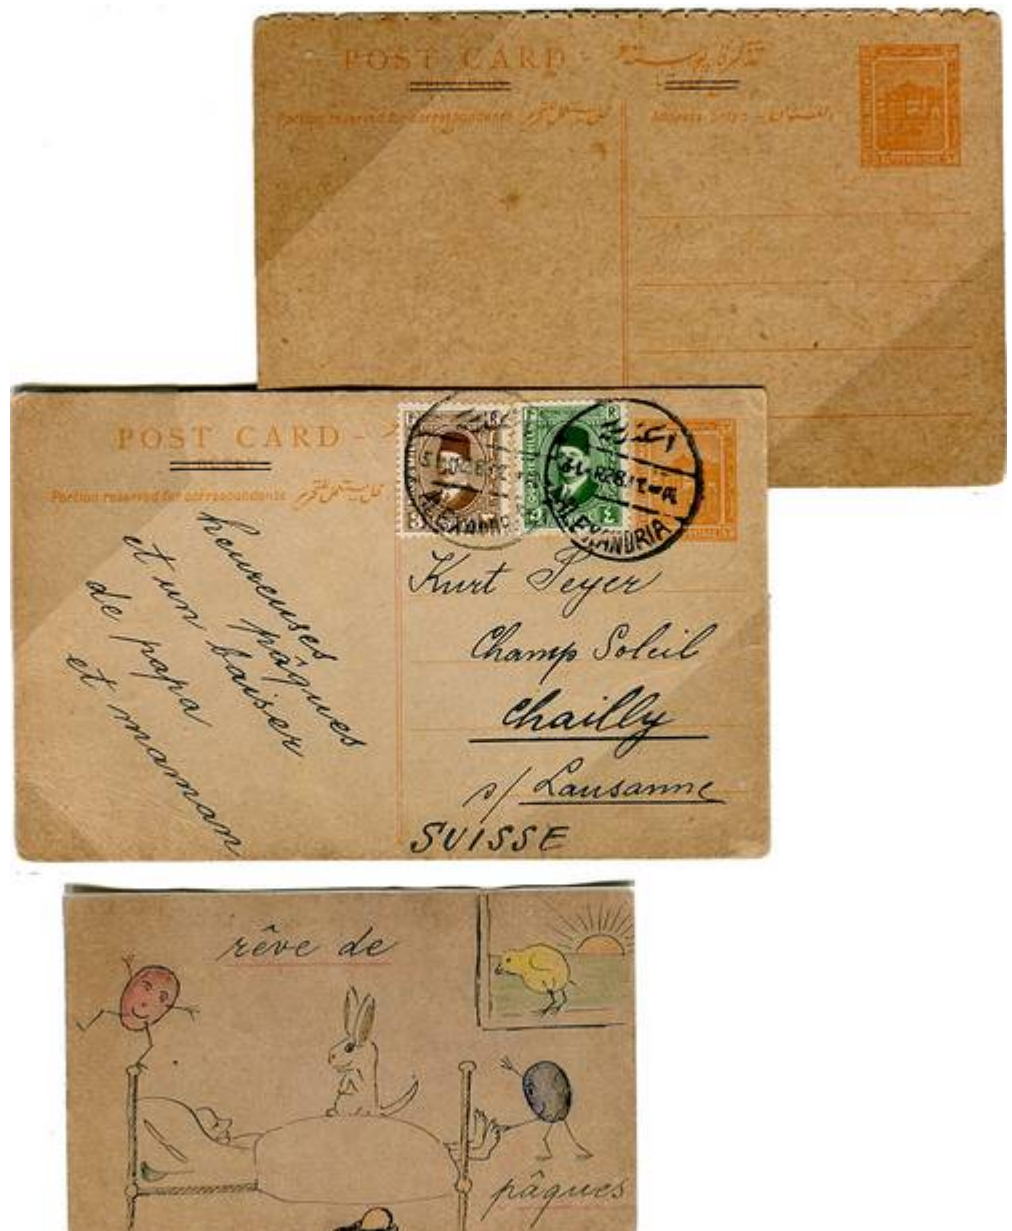 POST CARD - تذكرة بوستة
Portion reserved for correspondence
Address only -
POST CARD -
Portion reserved for correspondence
ALEXANDRIA
heureuses
pâques
et un baiser
de papa
et maman
Kurt Seyer
Champ Soleil
Chailly
s/ Lausanne
SUISSE
rêve de
pâques